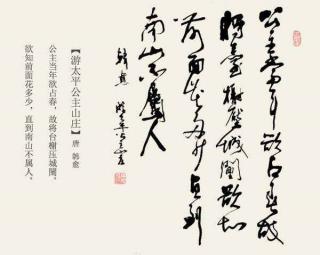 公主当年欲占春故
将臺榭壓城闉欲知
前面花多少直到
南山不屬人
韓愈
【游太平公主山庄】
唐 韩愈
公主当年欲占春，故将台榭压城闉。
欲知前面花多少，直到南山不属人。